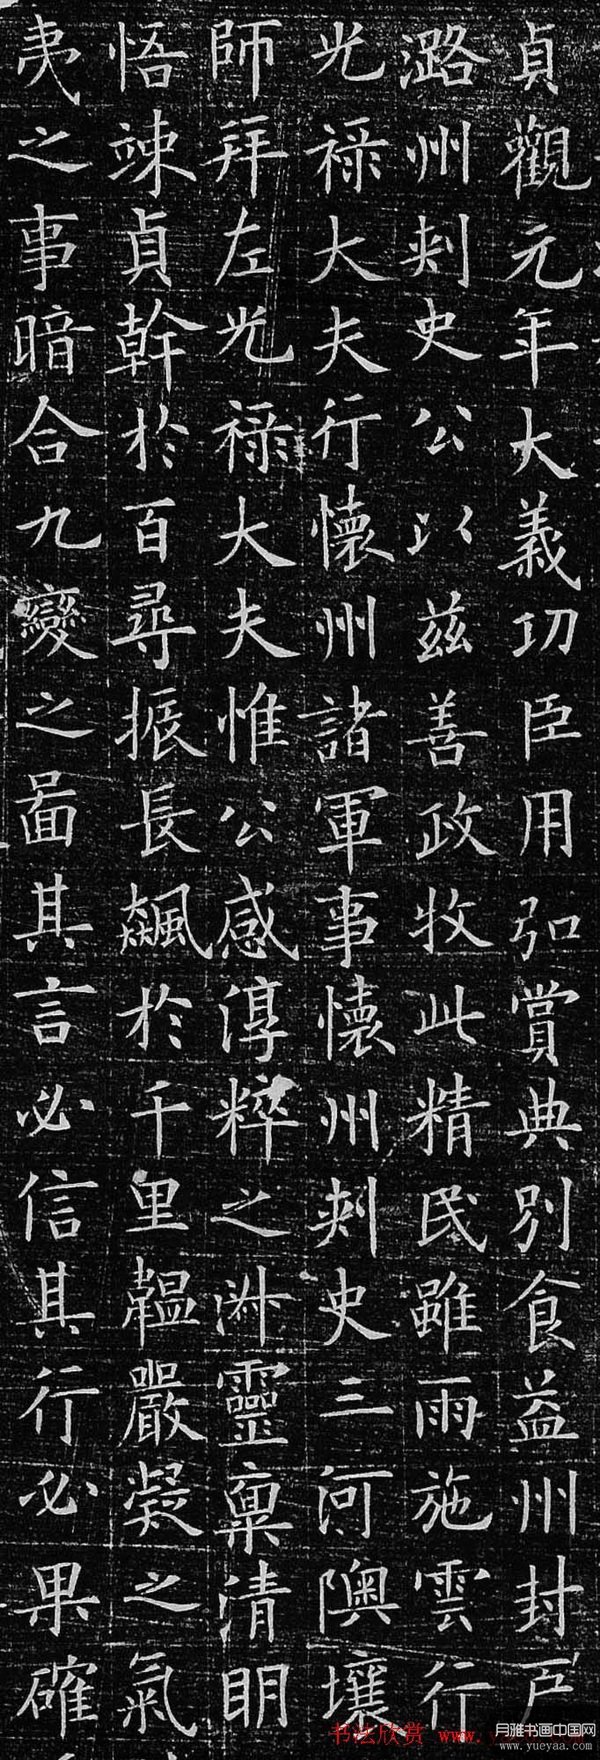 貞觀元年大義功臣用弘賞典別食益州封戶
潞州刺史公以茲善政牧此精民雖雨施雲行
光祿大夫行懷州諸軍事懷州刺史三河隩壤
師拜左光祿大夫惟公感淳粹之淋靈稟清明
悟竦貞幹於百尋振長飆於千里韞嚴凝之氣
夷之事暗合九變之啚其言必信其行必果確
书法欣赏 www.y
月雅书画中国网
www.yueyaa.com